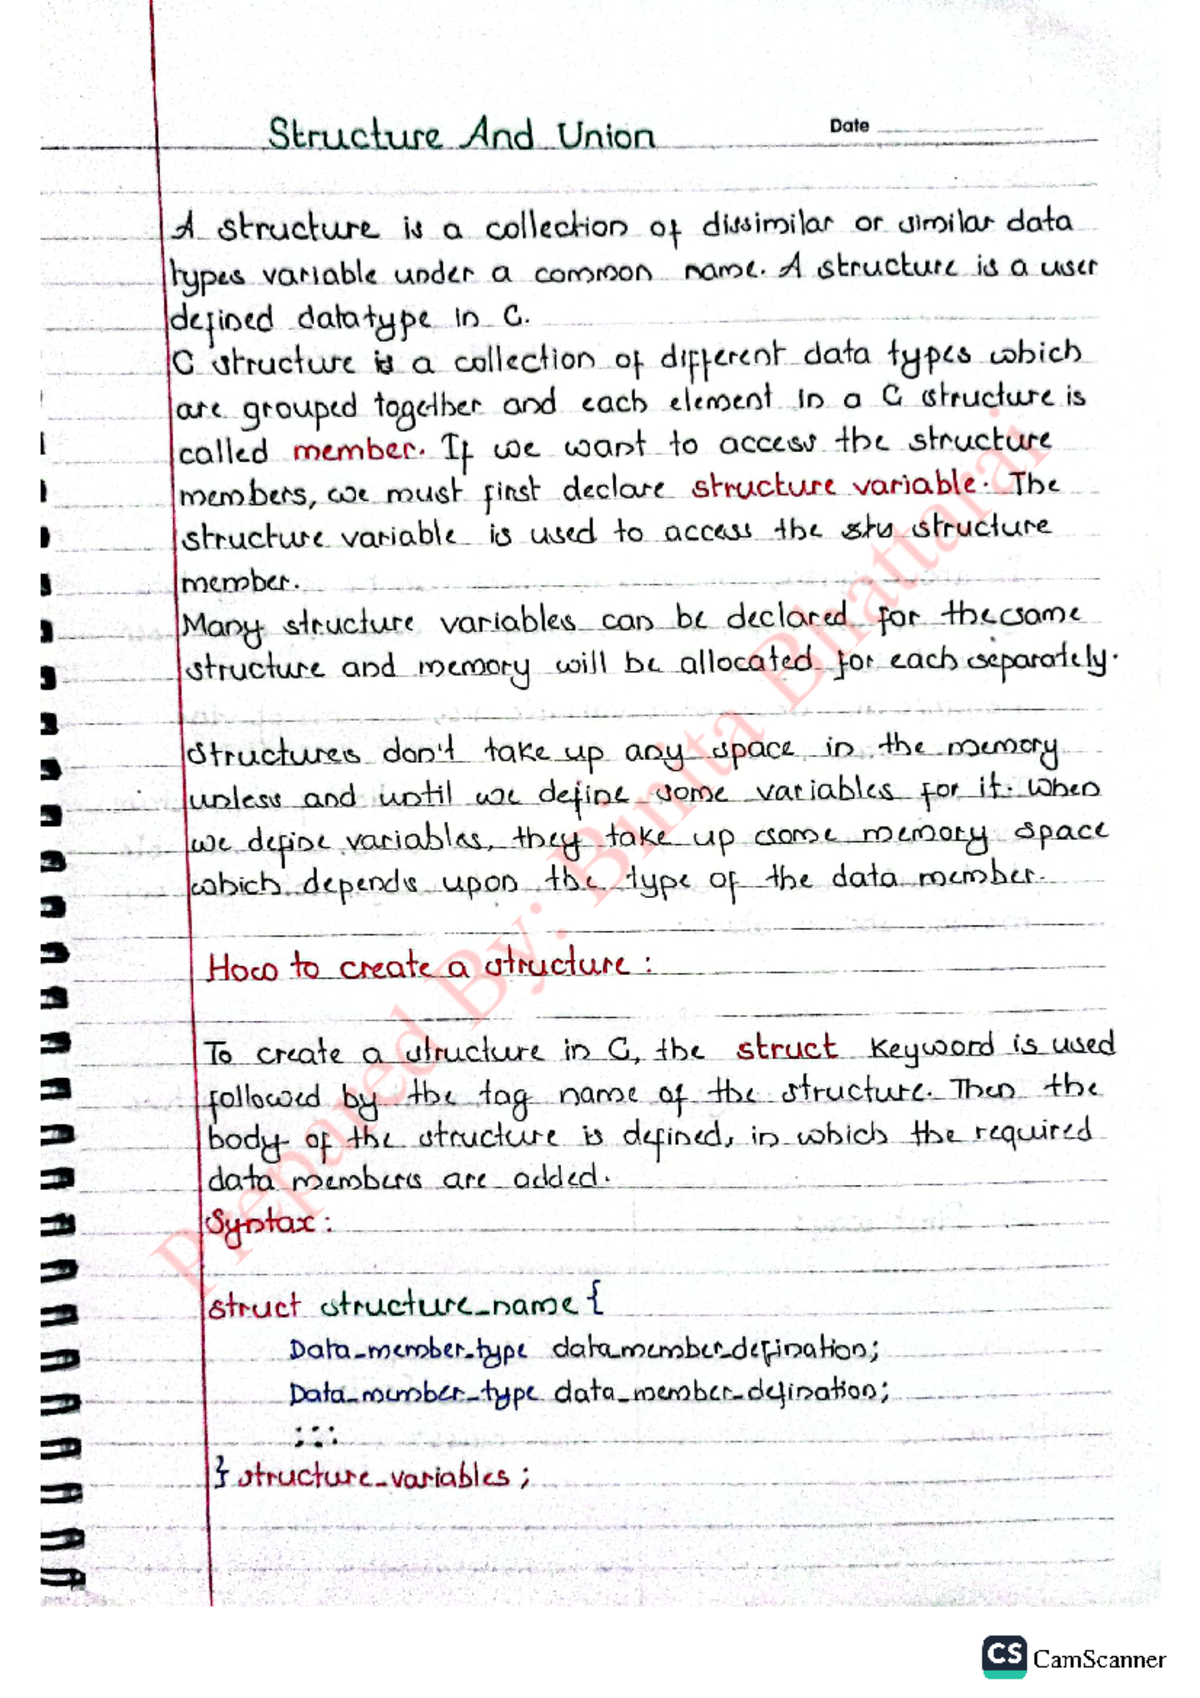 Structure And Union
Date
A structure is a collection of dissimilar or similar data
types variable under a common name. A structure is a user
defined datatype in C.
C structure is a collection of different data types which
are grouped together and each element in a C structure is
called member. If we want to access the structure
members, we must first declare structure variable. The
structure variable is used to access the stu structure
member.
Many structure variables can be declared for the same
structure and memory will be allocated for each separately.
Structures don't take up any space in the memory
unless and until we define some variables for it. When
we define variables, they take up some memory space
which depends upon the type of the data member.
How to create a structure :
To create a structure in C, the struct keyword is used
followed by the tag name of the structure. Then the
body of the structure is defined, in which the required
data members are added.
Syntax :
struct structure_name {
Data_member_type data_member_defination;
Data_member_type data_member_defination;
: : :
} structure_variables ;
Prepared By: Binita Bhattarai
CS CamScanner